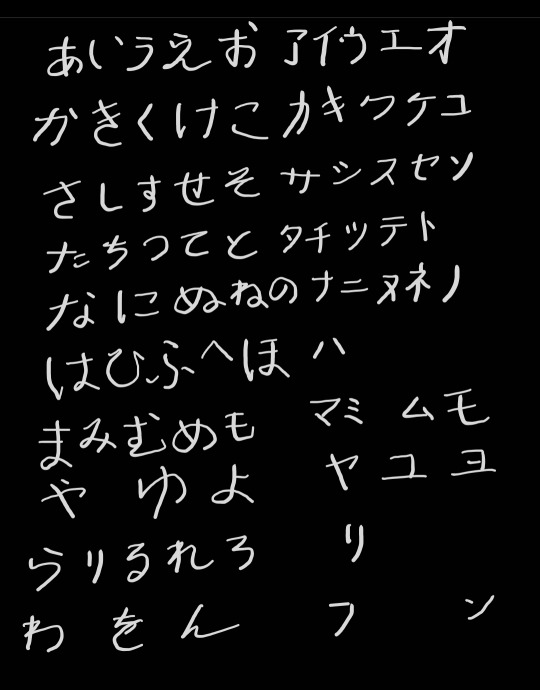 あいうえお アイウエオ
かきくけこ カキクケコ
さしすせそ サシスセソ
たちつてと タチツテト
なにぬねの ナニヌネノ
はひふへほ ハ
まみむめも マミ ムモ
や ゆ よ ヤ ユ ヨ
らりるれろ リ
わ を ん フ ン